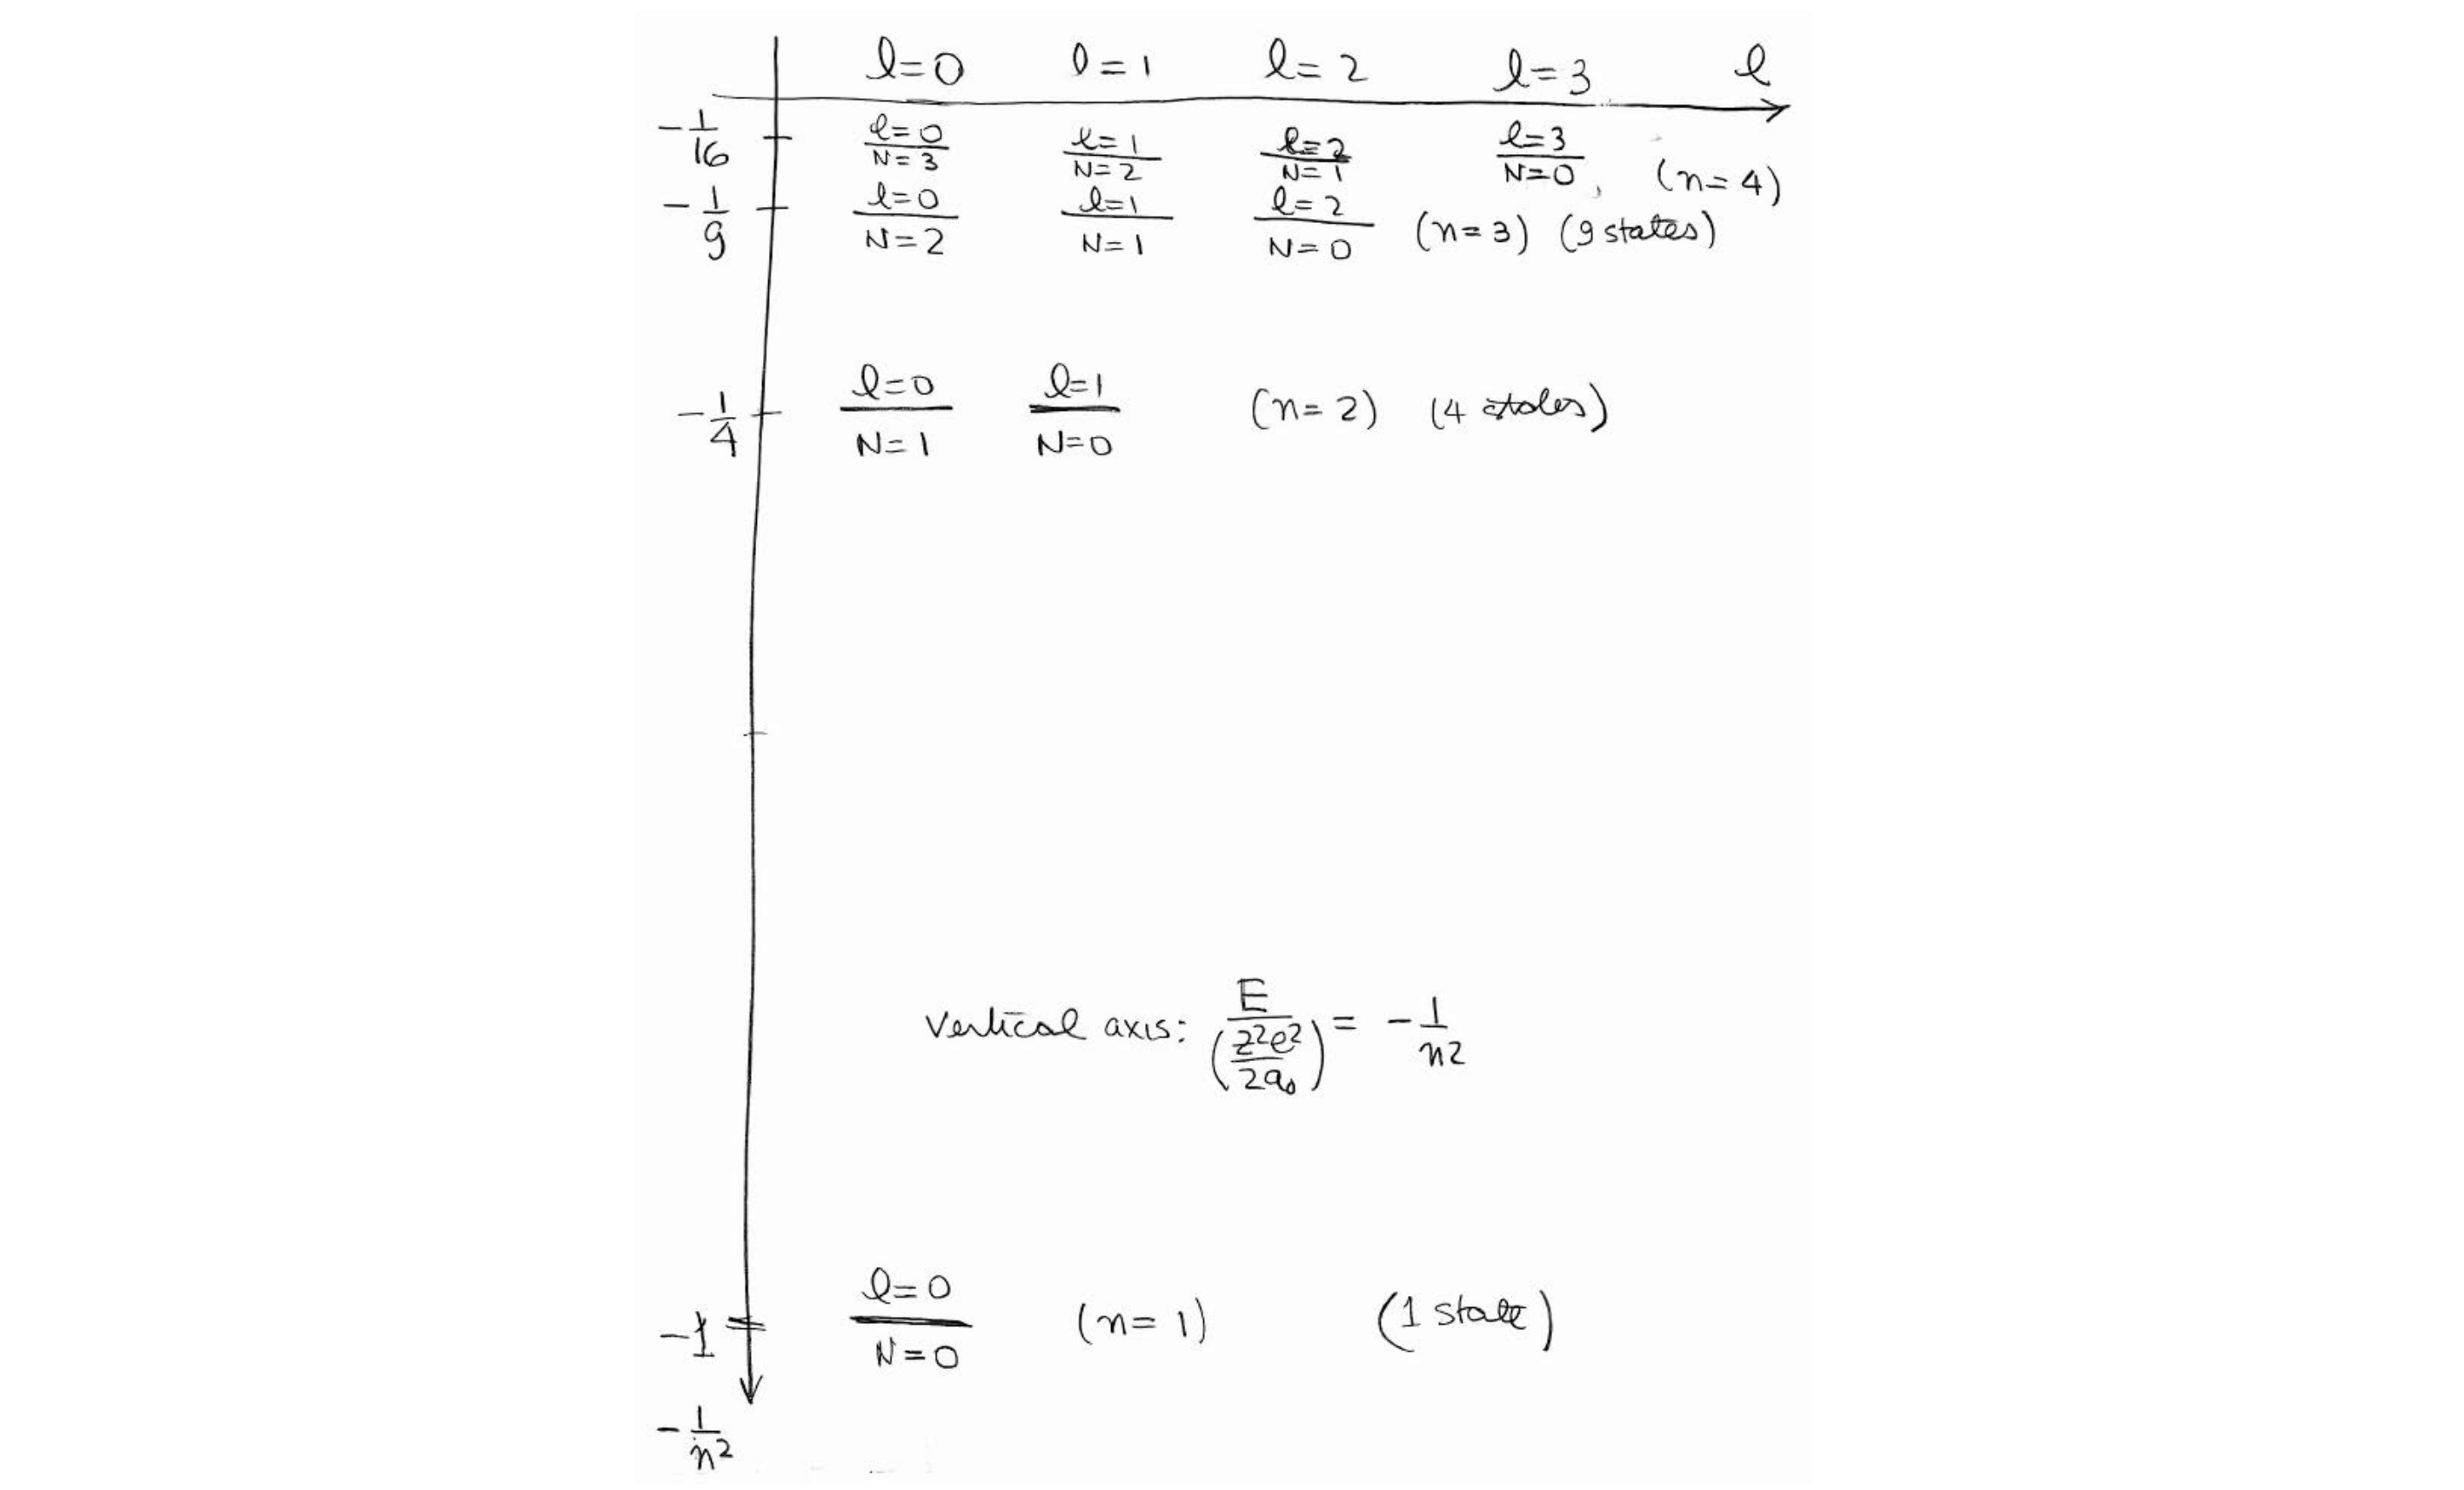 l=0 l=1 l=2 l=3 l
-1/16 l=0/N=3 l=1/N=2 l=2/N=1 l=3/N=0, (n=4)
-1/9 l=0/N=2 l=1/N=1 l=2/N=0 (n=3) (9 states)
-1/4 l=0/N=1 l=1/N=0 (n=2) (4 states)
Vertical axis: E/(z²e²/2a₀) = -1/n²
-1 l=0/N=0 (n=1) (1 state)
-1/n²